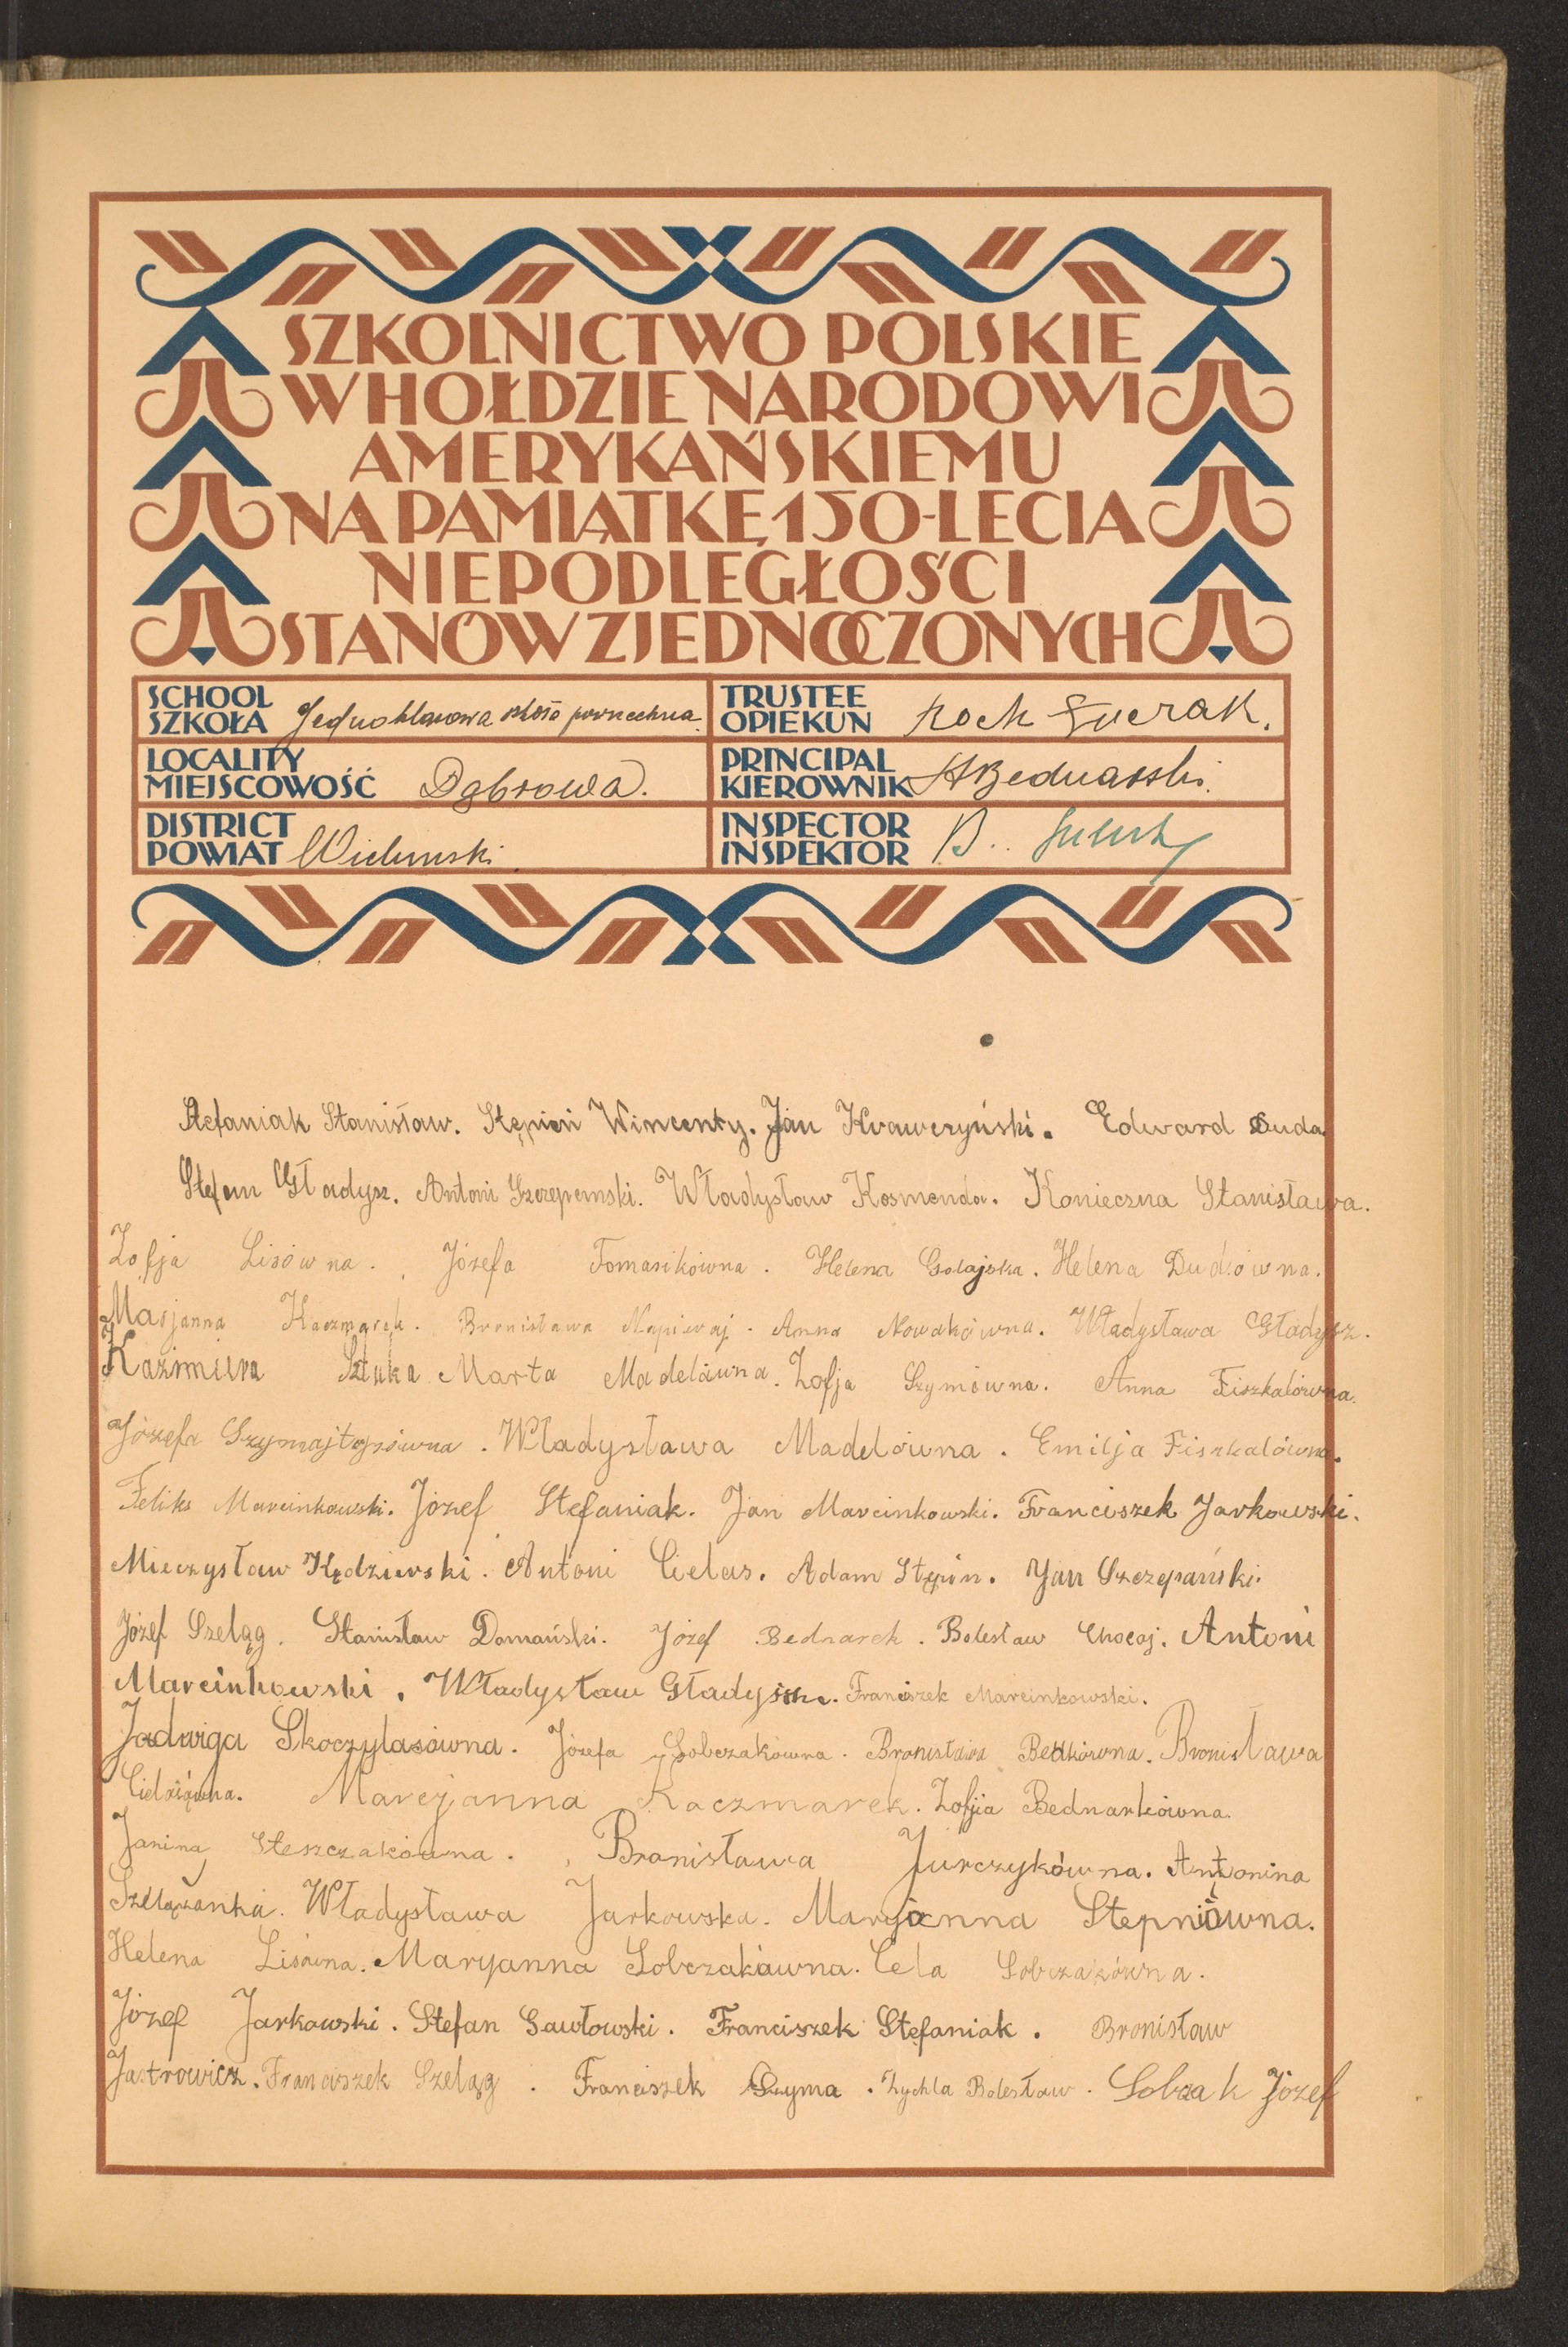 SZKOLNICTWO POLSKIE
W HOŁDZIE NARODOWI
AMERYKAŃSKIEMU
NA PAMIĄTKĘ 150-LECIA
NIEPODLEGŁOŚCI
STANÓW ZJEDNOCZONYCH
SCHOOL
SZKOŁA Jednoklasowa szkoła powszechna.
LOCALITY
MIEJSCOWOŚĆ Dąbrowa.
DISTRICT
POWIAT Wieluński
TRUSTEE
OPIEKUN Roch
PRINCIPAL
KIEROWNIK Bednarski.
INSPECTOR
INSPEKTOR B.
Stefaniak Stanisław. Stępień Wincenty. Jan Krawczyński. Edward Duda
Stefan Gładysz. Antoni Szczepemski. Władysław Kosmenda. Konieczna Stanisława.
Zofja Lisówna. Józefa Tomasikówna. Helena Golajska. Helena Dudówna.
Marjanna Kaczmarek. Bronisława Napieraj. Anna Nowakówna. Władysława Gładysz.
Kazimiera Sztuka Marta Madelówna. Zofja Szymówna. Anna Fiszkalówna.
Józefa Szymajtysówna. Władysława Madelówna. Emilja Fiszkalówna.
Feliks Marcinkowski. Józef Stefaniak. Jan Marcinkowski. Franciszek Jarkowski.
Mieczysław Kędzierski. Antoni Cielas. Adam Stępin. Jan Szczepański.
Józef Szeląg. Stanisław Domański. Józef Bednarek. Bolesław Chocaj. Antoni
Marcinkowski. Władysław Franciszek Marcinkowski.
Jadwiga Skoczylasówna. Józefa Sobczakówna. Bronisława Bedkówna. Bronisława
Marcyjanna Kaczmarek. Zofjia Bednarkówna.
Janina Steszczakówna. Bronisława Jurczykówna. Antonina
Szelążanka. Władysława Jarkowska. Maryjanna Stepniówna.
Helena Lisówna. Maryanna Sobczakówna. Cela Sobczakówna.
Józef Jarkowski. Stefan Gawłowski. Franciszek Stefaniak. Bronisław
Jastrowicz. Franciszek Szeląg. Franciszek Szyma. Zychla Bolesław. Sobczak Józef